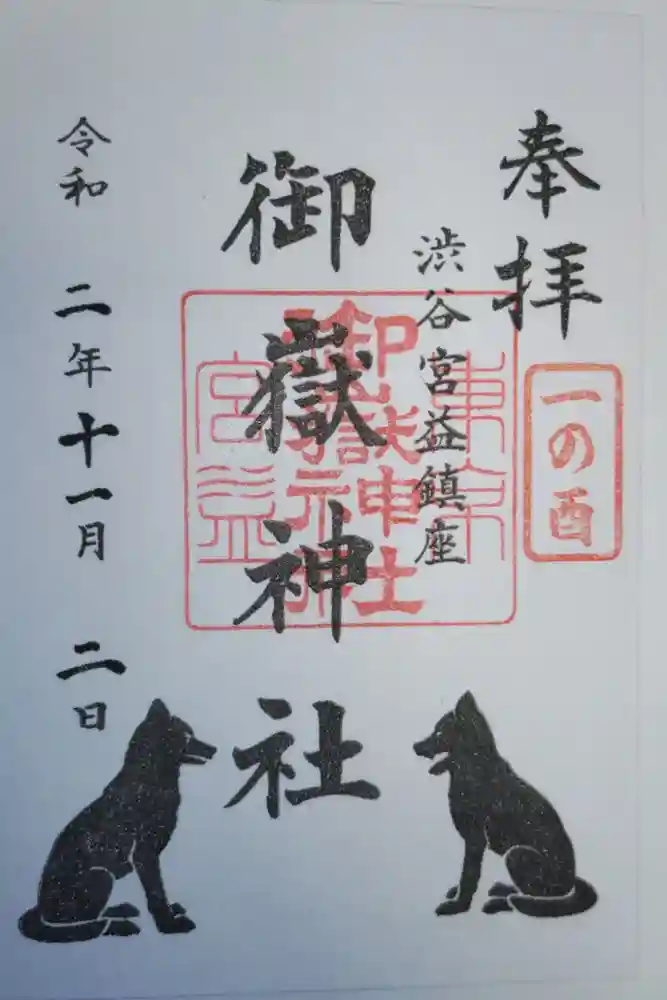 奉拝
一の酉
渋谷宮益鎮座
御嶽神社
東京
宮益
御嶽神社
令和二年十一月二日